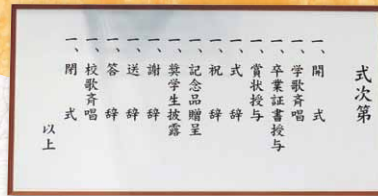 式次第
一、開式
一、学歌斉唱
一、卒業証書授与
一、賞状授与
一、式辞
一、祝辞
一、記念品贈呈
一、奨学生披露
一、謝辞
一、送辞
一、答辞
一、校歌斉唱
一、閉式
以上